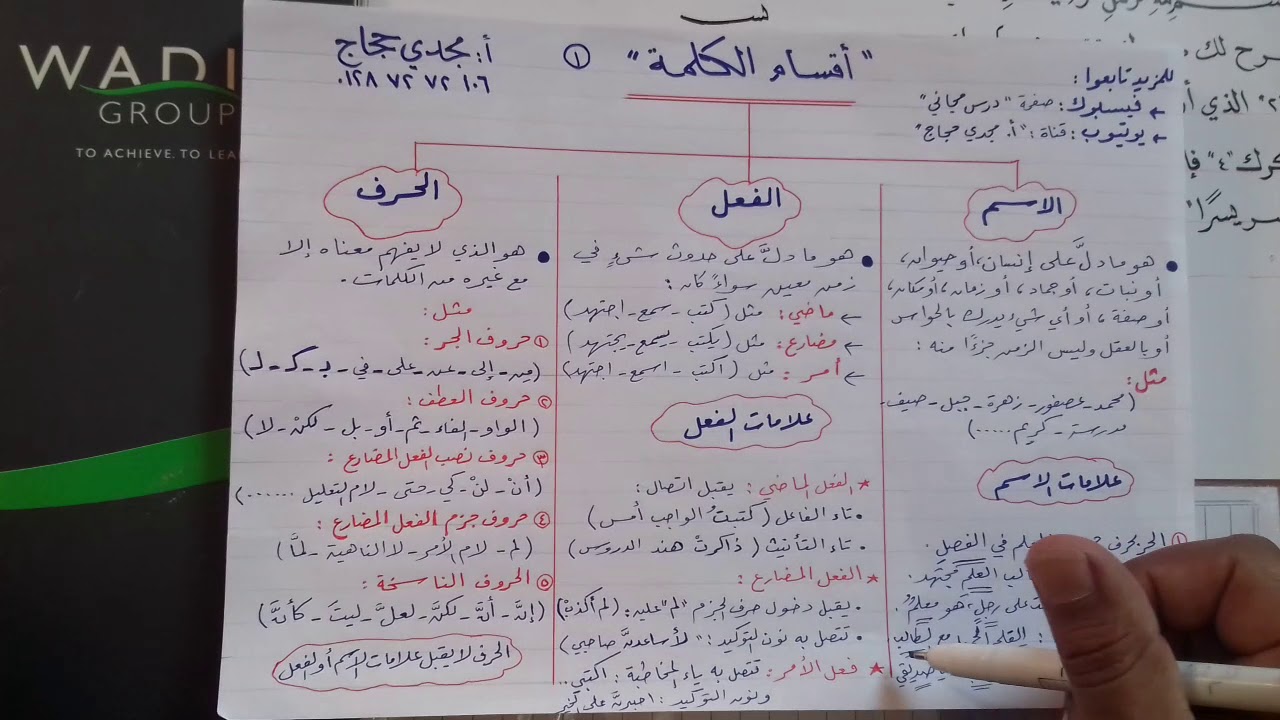 "أقسام الكلمة" ①
أ: مجدي حجاج
٠١٢٨ ٧٢ ٧٢ ١٠٦
للمزيد تابعوا:
← فيسبوك: صفحة "درس مجاني"
← يوتيوب: قناة: "أ. مجدي حجاج"
الاسم
● هو ما دلَّ على إنسان، أو حيوان،
أو نبات، أو جماد، أو زمان، أو مكان،
أو صفة، أو أي شيء يدرك بالحواس
أو بالعقل وليس الزمن جزءًا منه:
مثل:
(محمد - عصفور - زهرة - جبل - صيف -
مدرسة - كريم .....)
علامات الاسم
في الفصل.
العلم مجتهد.
على رجلٍ، هو معلمٌ.
صديقي
الفعل
● هو ما دلَّ على حدوث شيءٍ في
زمن معين سواءً كان:
← ماضي: مثل (كتب - سمع - اجتهد)
← مضارع: مثل (يكتب - يسمع - يجتهد)
← أمر: مثل (اكتب - اسمع - اجتهد)
علامات الفعل
★ الفعل الماضي: يقبل اتصال:
• تاء الفاعل (كتبتُ الواجب أمس)
• تاء التأنيث (ذاكرتْ هند الدروس)
★ الفعل المضارع:
• يقبل دخول حرف الجزم "لم" عليه: (لم أكذبْ)
• تتصل به نون التوكيد: "لأساعدنَّ صاحبي)
★ فعل الأمر: تتصل به ياء المخاطبة: اكتبي..
ونون التوكيد: اصبرنَّ على
الحرف
● هو الذي لا يفهم معناه إلا
مع غيره من الكلمات.
مثل:
① حروف الجر:
(من - إلى - عن - على - في - بـ - كـ - لـ)
② حروف العطف:
(الواو - الفاء - ثم - أو - بل - لكنْ - لا)
③ حروف نصب الفعل المضارع:
(أنْ - لنْ - كي - حتى - لام التعليل ......)
④ حروف جزم الفعل المضارع:
(لم - لام الأمر - لا الناهية - لمَّا)
⑤ الحروف الناسخة:
(إنَّ - أنَّ - لكنَّ - لعلَّ - ليتَ - كأنَّ)
الحرف لا يقبل علامات الاسم أو الفعل
WADI
GROUP
TO ACHIEVE. TO LEA